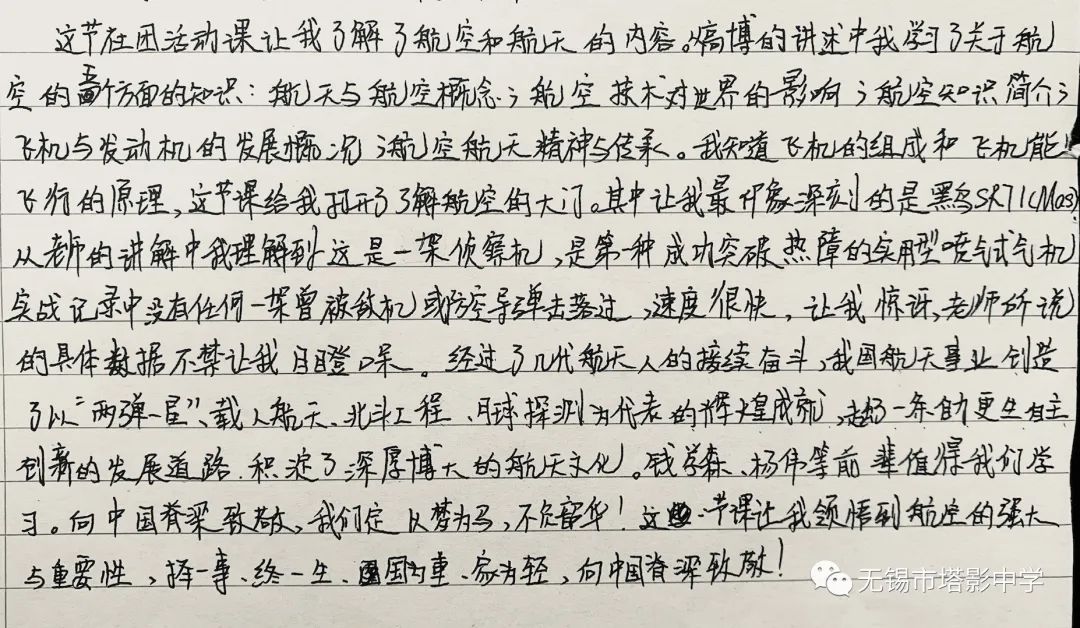 这节社团活动课让我了解了航空和航天的内容。从高博的讲述中我学习了关于航
空的五个方面的知识：航天与航空概念；航空技术对世界的影响；航空知识简介；
飞机与发动机的发展概况；航空航天精神与传承。我知道飞机的组成和飞机能
飞行的原理，这节课给我打开了了解航空的大门。其中让我最印象深刻的是黑鸟SR71(Ma3)
从老师的讲解中我理解到这是一架侦察机，是第一种成功突破热障的实用型喷气式气机
实战记录中没有任何一架曾被敌机或防空导弹击落过，速度很快，让我惊讶，老师所说
的具体数据不禁让我目瞪口呆。经过了几代航天人的接续奋斗，我国航天事业创造
了以“两弹一星”、载人航天、北斗工程、月球探测为代表的辉煌成就，走一条自力更生自主
创新的发展道路，积淀了深厚博大的航天文化。钱学森、杨伟等前辈值得我们学
习。向中国脊梁致敬，我们定以梦为马，不负韶华！这一节课让我领悟到航空的强大
与重要性，择一事、终一生、国为重、家为轻，向中国脊梁致敬！
无锡市塔影中学